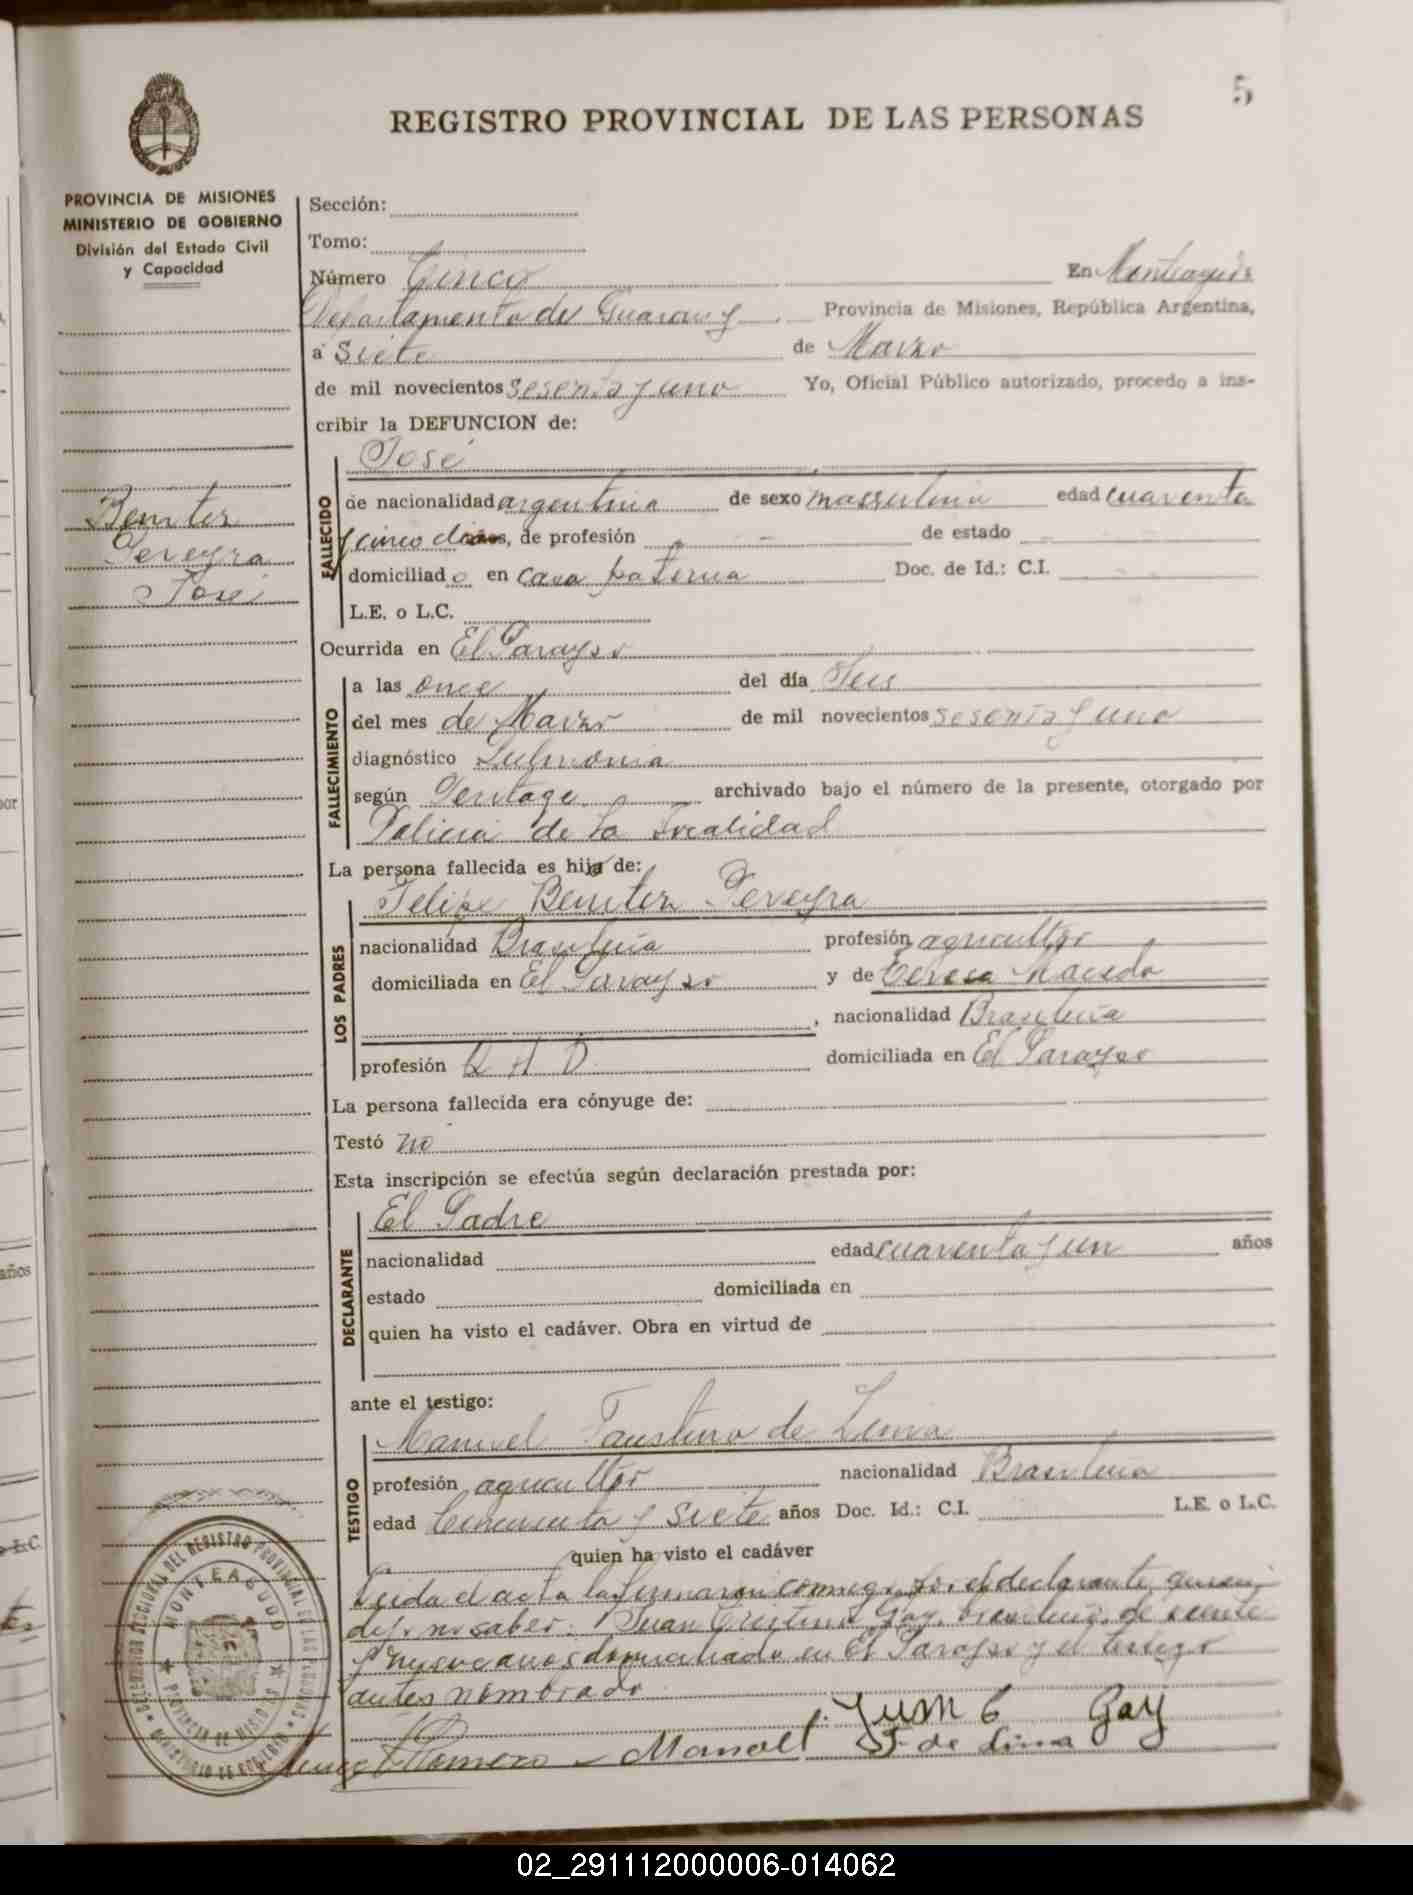 5
REGISTRO PROVINCIAL DE LAS PERSONAS
PROVINCIA DE MISIONES
MINISTERIO DE GOBIERNO
División del Estado Civil
y Capacidad
Benitez
Pereyra
José
Sección:
Tomo:
Número Cinco En Monteagudo
Departamento de Guarany Provincia de Misiones, República Argentina,
a Siete de Marzo
de mil novecientos sesenta y uno Yo, Oficial Público autorizado, procedo a ins-
cribir la DEFUNCION de:
FALLECIDO
José
de nacionalidad argentina de sexo masculino edad cuarenta
y cinco dias, de profesión de estado
domiciliado en casa paterna Doc. de Id.: C.I.
L.E. o L.C.
Ocurrida en El Parayso
FALLECIMIENTO
a las once del día Seis
del mes de Marzo de mil novecientos sesenta y uno
diagnóstico Pulmonia
según archivado bajo el número de la presente, otorgado por
Policia de la Localidad
La persona fallecida es hijo de:
LOS PADRES
Felipe Benitez Pereyra
nacionalidad Brasileña profesión agricultor
domiciliada en El Parayso y de Teresa Macedo
, nacionalidad Brasileña
profesión Q H D domiciliada en El Parayso
La persona fallecida era cónyuge de:
Testó no
Esta inscripción se efectúa según declaración prestada por:
DECLARANTE
El Padre
nacionalidad edad cuarenta y un años
estado domiciliada en
quien ha visto el cadáver. Obra en virtud de
ante el testigo:
TESTIGO
Manuel Faustino de Lima
profesión agricultor nacionalidad Brasileña
edad Cincuenta y Siete años Doc. Id.: C.I. L.E. o L.C.
quien ha visto el cadáver
Leida el acta la firmaron conmigo, por el declarante, quien
dijo no saber. Juan Gay, brasileño, de veinte
y nueve años domiciliado en El Parayso y el testigo
antes nombrado
Juan C Gay
Romero Manoel F. de Lima
DELEGACION SECCIONAL DEL REGISTRO PROVINCIAL DE LAS PERSONAS
MONTEAGUDO
PROVINCIA DE MISIONES
MINISTERIO DE GOBIERNO
años
02_291112000006-014062